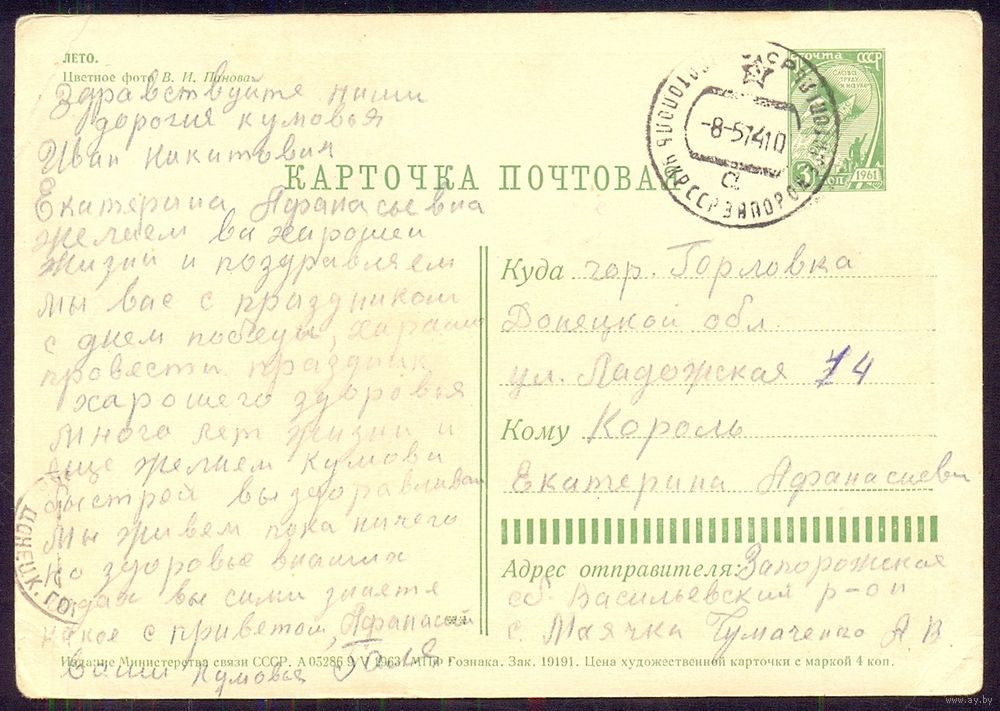 ЛЕТО.
Цветное фото В. И. Панова
Здравствуйте наши
дорогия кумовья
Иван Никитович
Екатерина Афанасьевна
желаем вам харошей
жизни и поздравляем
мы вас с праздником
с днем победы, харашо
провести праздник
харошего здоровья
много лет жизни и
еще желаем кумови
быстрой
мы живем пока ничего
но здоровье
вы сами знаете
какое с приветом, Афанасий
Галя
ваши кумовья
КАРТОЧКА ПОЧТОВАЯ
УКРССР ЗАПОРОЖ
-8-5
а
ПОЧТА СССР
СЛАВА
ТРУДУ
И НАУКЕ
1961
КОП
Куда гор. Горловка
Донецкой обл.
ул. Ладожская 74
Кому Король
Екатерина Афанасиевн
Адрес отправителя: Запорожская
об. Васильевский р-он
с. Маячка Чумаченко А. В.
ДОНЕЦК. ГО
Издание Министерства связи СССР. А 05286 9/V 1963. МПФ Гознака. Зак. 19191. Цена художественной карточки с маркой 4 коп.
www.ay.by